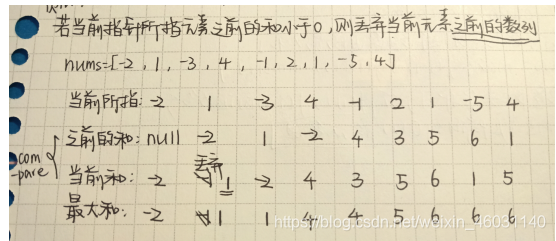 若当前指针所指元素之前的和小于0,则丢弃当前元素之前的数列
nums=[-2, 1, -3, 4, -1, 2, 1, -5, 4]
当前所指: -2 1 -3 4 -1 2 1 -5 4
之前的和: null -2 1 -2 4 3 5 6 1
com
-pare
丢弃
当前和: -2 1 -2 4 3 5 6 1 5
最大和: -2 1 1 4 4 5 6 6 6
https://blog.csdn.net/weixin_46031140